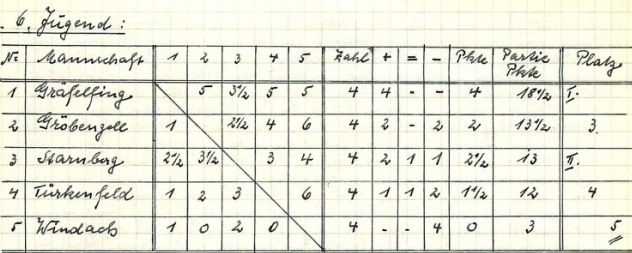 6. Jugend:
№ Mannschaft 1 2 3 4 5 Zahl + = - Pkte Partie Pkte Platz
1 Gräfelfing 5 3½ 5 5 4 4 - - 4 18½ I.
2 Gröbenzell 1 2½ 4 6 4 2 - 2 2 13½ 3.
3 Starnberg 2½ 3½ 3 4 4 2 1 1 2½ 13 II.
4 Türkenfeld 1 2 3 6 4 1 1 2 1½ 12 4
5 Windach 1 0 2 0 4 - - 4 0 3 5